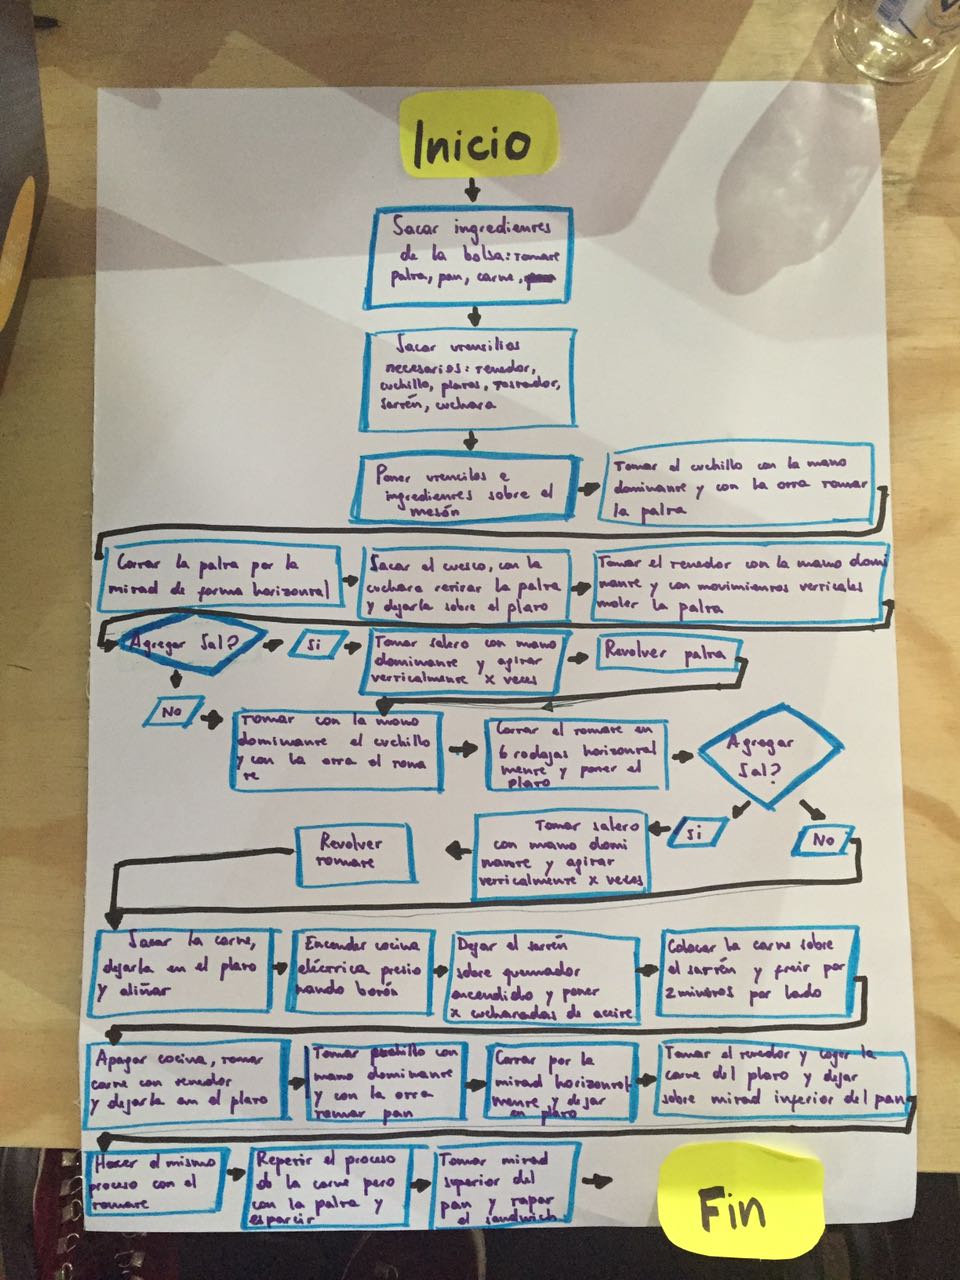 Inicio
Sacar ingredientes
de la bolsa: tomate
palta, pan, carne,
Sacar utensilios
necesarios: tenedor,
cuchillo, platos, tostador,
sartén, cuchara
Poner utencilos e
ingredientes sobre el
mesón
Tomar el cuchillo con la mano
dominante y con la otra tomar
la palta
Cortar la palta por la
mitad de forma horizontal
Sacar el cuesco, con la
cuchara retirar la palta
y dejarla sobre el plato
Tomar el tenedor con la mano domi
nante y con movimientos verticales
moler la palta
Agregar Sal?
Si
Tomar salero con mano
dominante y agitar
verticalmente x veces
Revolver palta
No
Tomar con la mano
dominante el cuchillo
y con la otra el toma
te
Cortar el tomate en
6 rodajas horizontal
mente y poner el
plato
Agregar
Sal?
Si
No
Tomar salero
con mano domi
nante y agitar
verticalmente x veces
Revolver
tomate
Sacar la carne,
dejarla en el plato
y aliñar
Encender cocina
eléctrica presio
nando botón
Dejar el sartén
sobre quemador
encendido y poner
x cucharadas de aceite
Colocar la carne sobre
el sartén y freir por
2 minutos por lado
Apagar cocina, tomar
carne con tenedor
y dejarla em el plato
Tomar cuchillo con
mano dominante
y con la otra
tomar pan
Cortar por la
mitad horizontal
mente y dejar
en plato
Tomar el tenedor y coger la
carne del plato y dejar
sobre mitad inferior del pan
Hacer el mismo
proceso con el
tomate
Repetir el proceso
de la carne pero
con la palta y
esparcir
Tomar mitad
superior del
pan y tapar
el sandwich
Fin